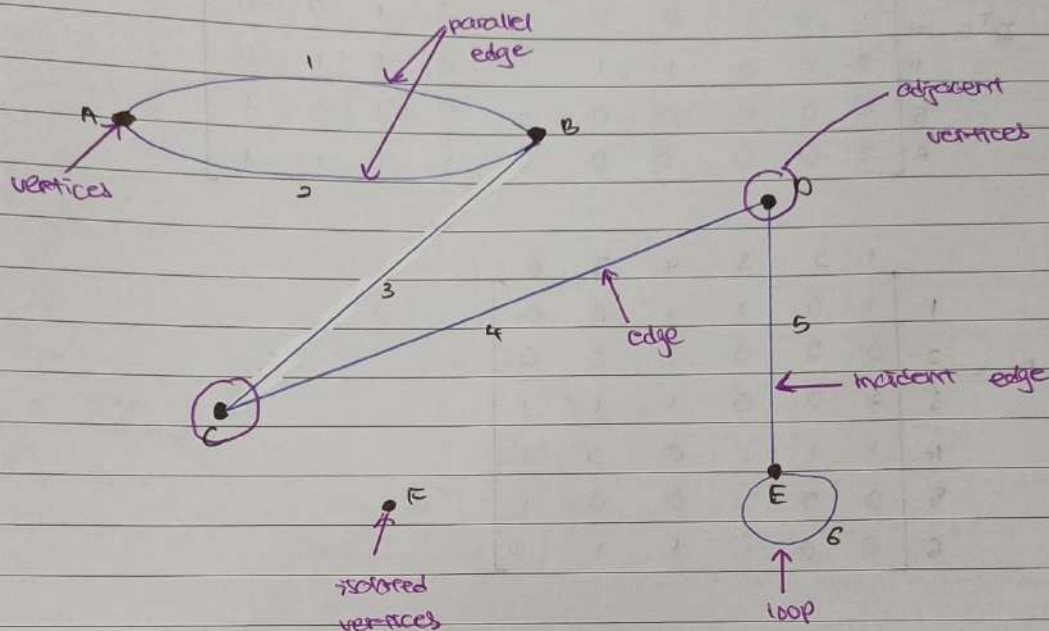 parallel
edge
1
A
B
adjacent
vertices
vertices
2
D
3
4
edge
5
incident edge
C
E
F
6
isolated
vertices
loop